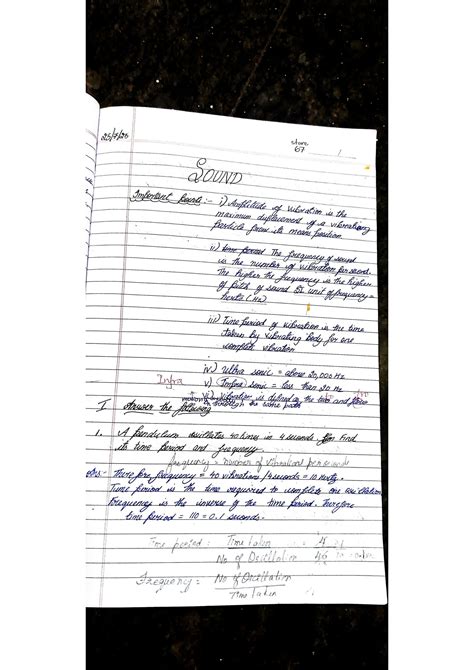 25/7/25
67
SOUND
Important Points :- i) Amplitude of vibration is the
maximum displacement of a vibrating
particle from its mean position.
ii) time period The frequency of sound
is the number of vibration per second.
The higher the frequency is the higher
of pitch of sound unit of frequency =
hertz (Hz)
iii) Time period of vibration is the time
taken by vibrating body for one
complete vibration
iv) Ultra sonic = above 20,000 Hz
Infra
v) Infra sonic = less than 20 Hz
vi) vibration is defined as the two and
motion through the same path
I Answer the following
1. A Pendulum oscillates 40 times in 4 seconds Find
its time period and frequency.
frequency = number of vibrations per seconds
Ans:- Therefore frequency = 40 vibrations / 4 seconds = 10 hertz.
Time period is the time required to complete one oscillation
Frequency is the inverse of the time period. Therefore
time period = 110 = 0.1 seconds.
Time period : Time taken = 4
No of Oscillation 40
Frequency : No of Oscillation
Time Taken